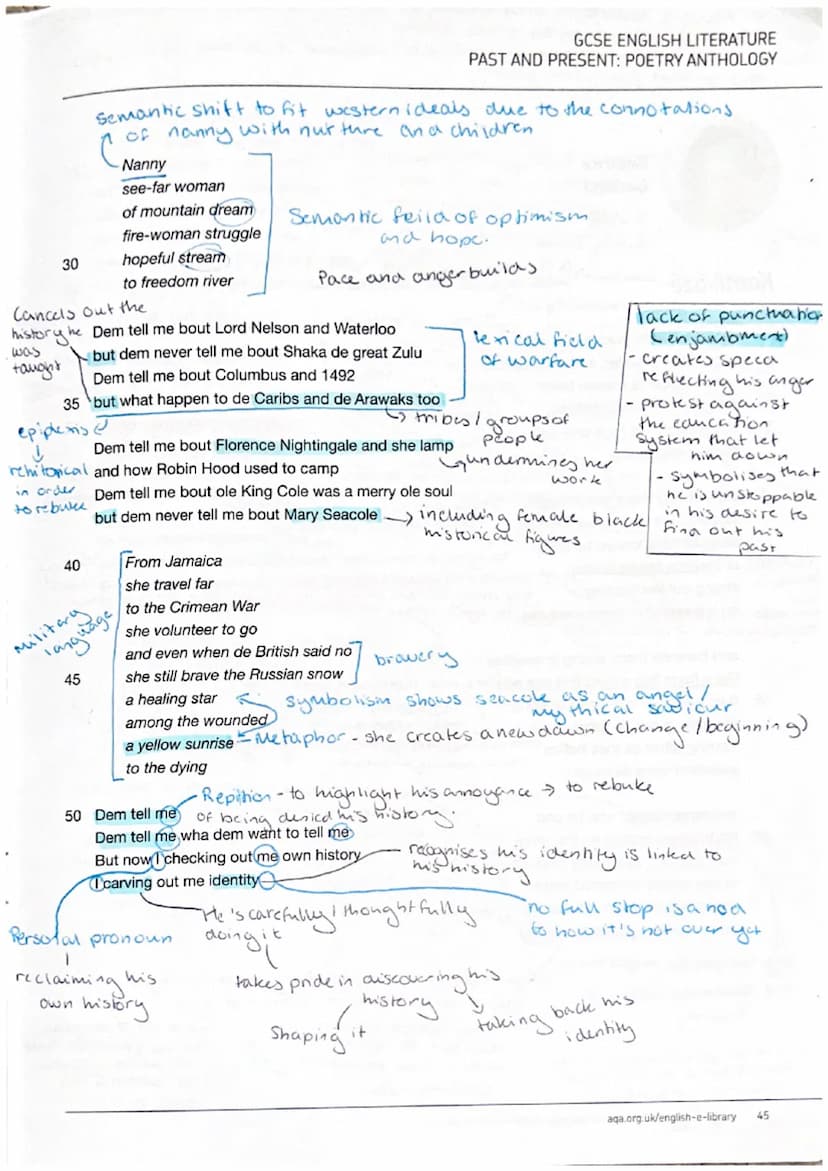 GCSE ENGLISH LITERATURE
PAST AND PRESENT: POETRY ANTHOLOGY
Semantic shift to fit western ideals due to the connotations
of nanny with nurture and children
Nanny
see-far woman
of mountain dream
fire-woman struggle
30 hopeful stream
to freedom river
Semantic feild of optimism
and hope.
Pace and anger builds
Cancels out the
history he
was
taught
Dem tell me bout Lord Nelson and Waterloo
but dem never tell me bout Shaka de great Zulu
Dem tell me bout Columbus and 1492
35 but what happen to de Caribs and de Arawaks too
lexical field
of warfare
tribes / groups of
people
lack of punctuation
(enjambment)
- creates speed
reflecting his anger
- protest against
the education
system that let
him down
- symbolises that
he is unstoppable
in his desire to
find out his
past
epidexis
rehitorical
in order
to rebuke
Dem tell me bout Florence Nightingale and she lamp
and how Robin Hood used to camp
Dem tell me bout ole King Cole was a merry ole soul
but dem never tell me bout Mary Seacole
undermines her
work
including female black
historical figures
40 From Jamaica
she travel far
to the Crimean War
she volunteer to go
and even when de British said no
45 she still brave the Russian snow
a healing star
among the wounded
a yellow sunrise
to the dying
Military
language
bravery
symbolism shows seacole as an angel /
mythical saviour
Metaphor - she creates a new dawn (change / beginning)
Repition - to highlight his annoyance → to rebuke
of being denied his history.
50 Dem tell me
Dem tell me wha dem want to tell me
But now I checking out me own history
I carving out me identity
recognises his identity is linked to
his history
He's carefully / thoughtfully
doing it
no full stop is a nod
to how it's not over yet
Personal pronoun
reclaiming his
own history
takes pride in discovering his
history
Shaping it
taking back his
identity
aqa.org.uk/english-e-library 45